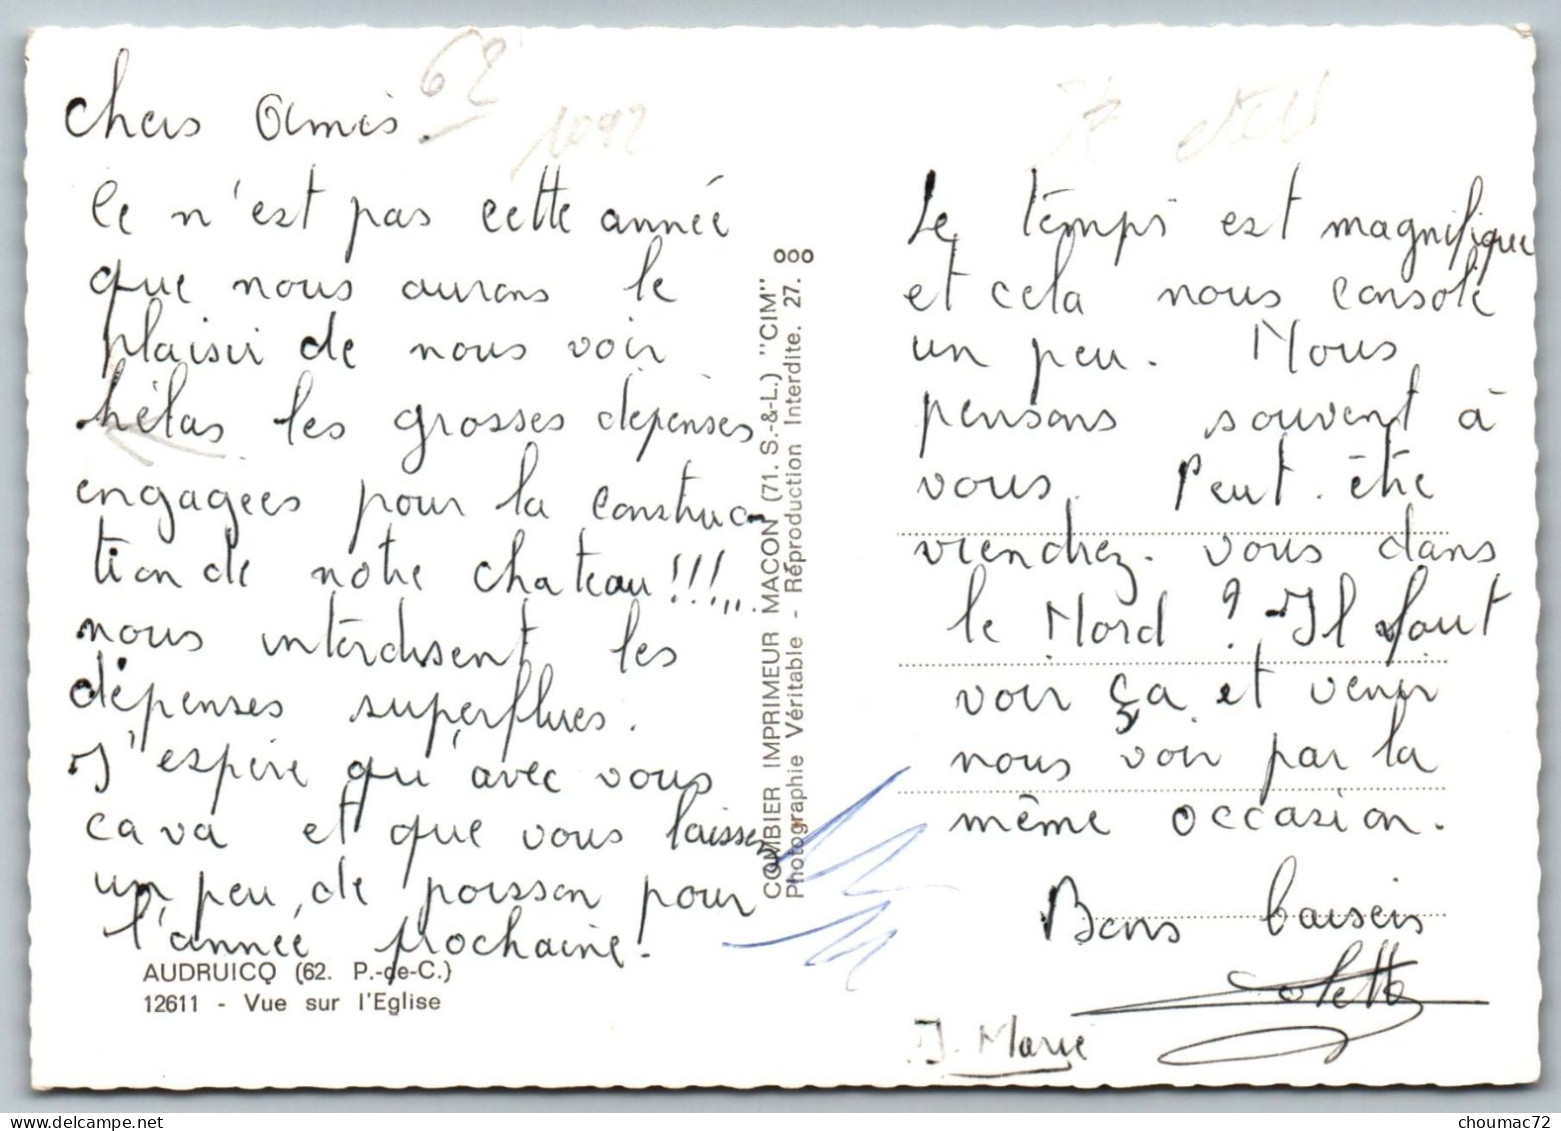 Chers Amis.
62
1092
Ce n'est pas cette année
que nous aurons le
plaisir de nous voir
hélas les grosses dépenses
engagées pour la construc-
tion de notre chateau!!!...
nous interdisent les
dépenses superflues.
J'espère qu'avec vous
cava et que vous laissez
un peu de poisson pour
l'année prochaine!
AUDRUICQ (62. P.-de-C.)
12611 - Vue sur l'Eglise
COMBIER IMPRIMEUR MACON (71. S.-&-L.) "CIM"
Photographie Véritable - Réproduction Interdite. 27. ooo
Le temps est magnifique
et cela nous console
un peu. Nous
pensons souvent à
vous. Peut-être
viendrez-vous dans
le Nord ? Il faut
voir ça et venir
nous voir par la
même occasion.
Bons baisers
Colette
J. Marie
choumac72